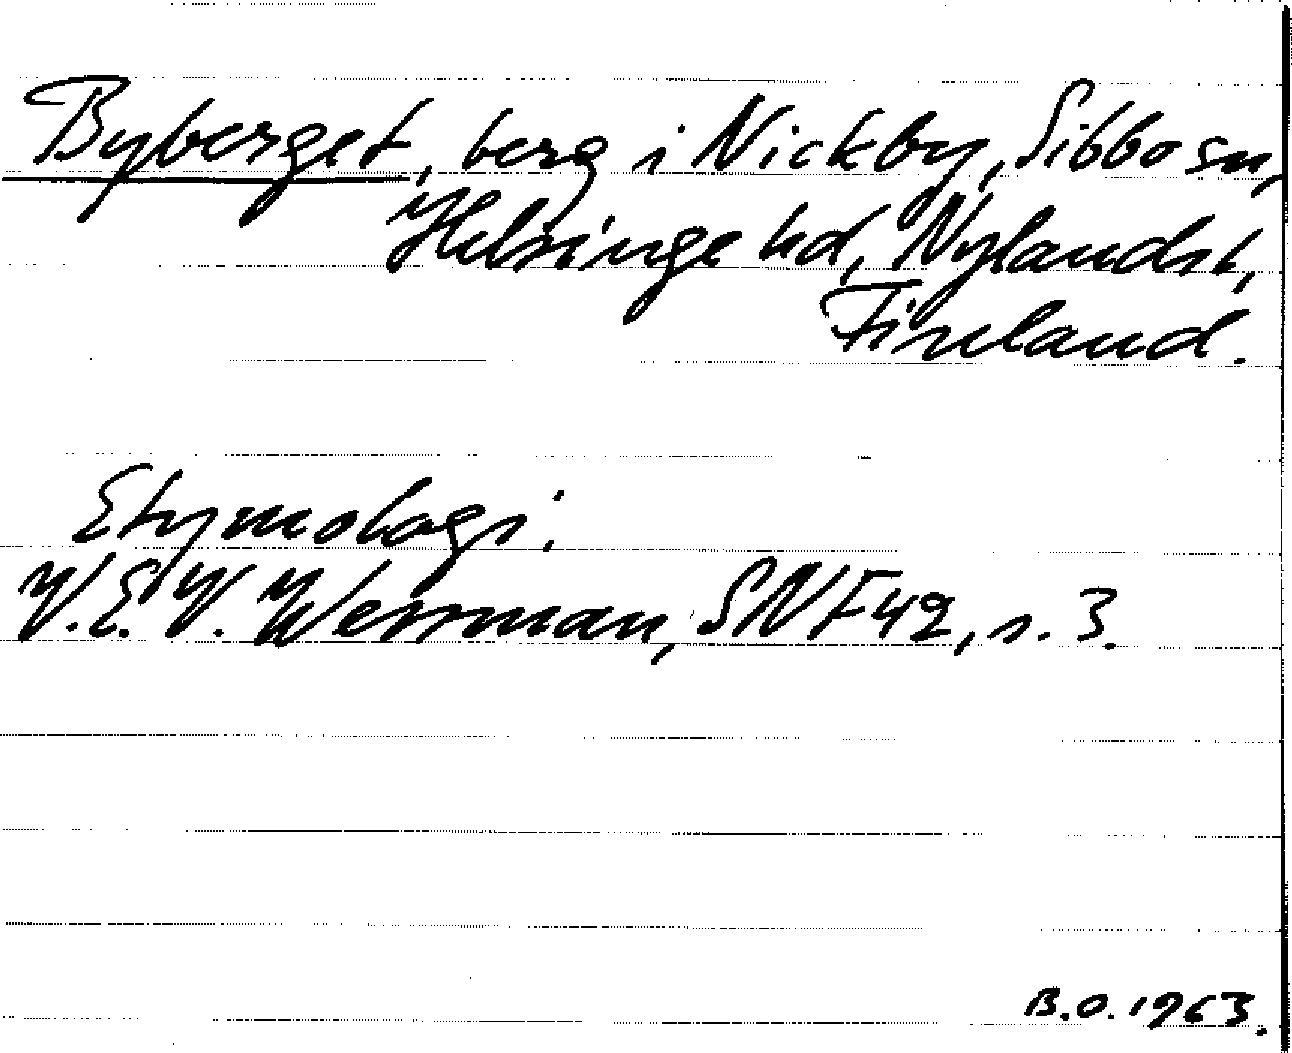 Byberget, berg i Nickby, Sibbo sn,
Helsinge hd, Nylands l,
Finland.
Etymologi.
V.E.V. Wessman, SNF 42, s. 3.
B.O. 1963.